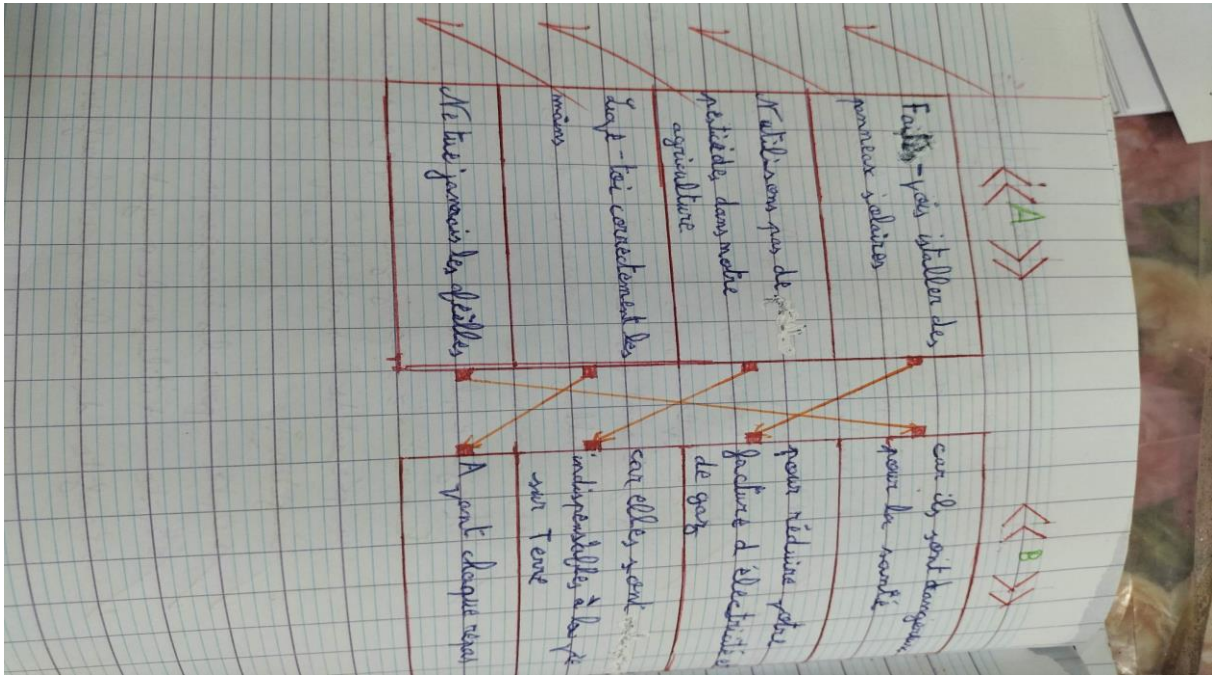 A
B
Faites-vous istaller des
panneax solaires
N'utilisons pas de
pesticides dans notre
agriculture
Lave-toi correctement les
mains
Ne tue jamais les
car ils sont dangereux
pour la santé
pour réduire votre
facture d'électricité
de gaz
car elles sont
indispensables à la vie
sur Terre
Avant chaque repas